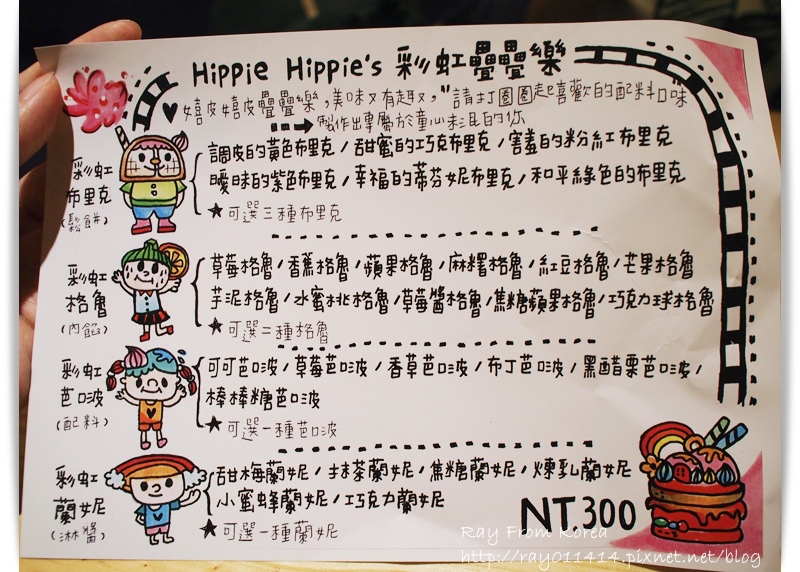 Hippie Hippie's 彩虹疊疊樂
嬉皮嬉皮疊疊樂，美味又有趣，請打圈圈起喜歡的配料口味
製作出專屬於童心未泯的你
彩虹布里克(鬆餅)
調皮的黃色布里克/甜蜜的巧克布里克/害羞的粉紅布里克
曖昧的紫色布里克/幸福的蒂芬妮布里克/和平綠色的布里克
★可選三種布里克
彩虹格魯(內餡)
草莓格魯/香蕉格魯/蘋果格魯/麻糬格魯/紅豆格魯/芒果格魯
芋泥格魯/水蜜桃格魯/草莓醬格魯/焦糖蘋果格魯/巧克力球格魯
★可選二種格魯
彩虹芭啵(配料)
可可芭啵/草莓芭啵/香草芭啵/布丁芭啵/黑醋栗芭啵/
棒棒糖芭啵
★可選一種芭啵
彩虹蘭妮(淋醬)
甜梅蘭妮/抹茶蘭妮/焦糖蘭妮/煉乳蘭妮
小蜜蜂蘭妮/巧克力蘭妮
★可選一種蘭妮
NT.300
Ray From Korea
http://ray011414.pixnet.net/blog